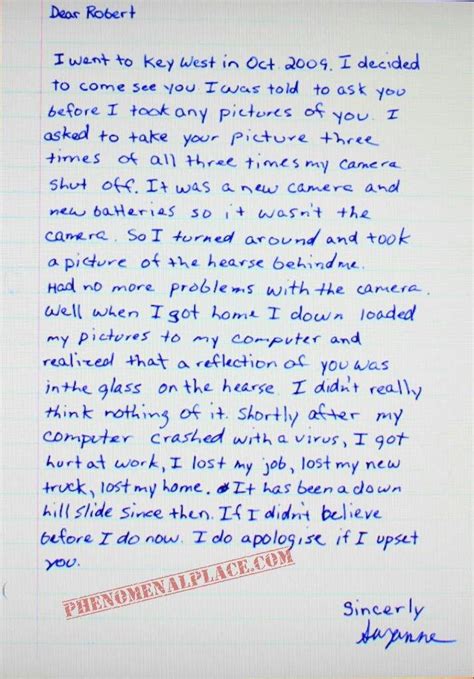 Dear Robert
I went to Key West in Oct 2009. I decided
to come see you I was told to ask you
before I took any pictures of you. I
asked to take your picture three
times of all three times my camera
shut off. It was a new camera and
new batteries so it wasn't the
camera. So I turned around and took
a picture of the hearse behind me.
Had no more problems with the camera.
Well when I got home I down loaded
my pictures to my computer and
realized that a reflection of you was
in the glass on the hearse. I didn't really
think nothing of it. Shortly after my
computer crashed with a virus, I got
hurt at work, I lost my job, lost my new
truck, lost my home. It has been a down
hill slide since then. If I didn't believe
before I do now. I do apologise if I upset
you.
PHENOMENALPLACE.COM
Sincerly
Suzanne